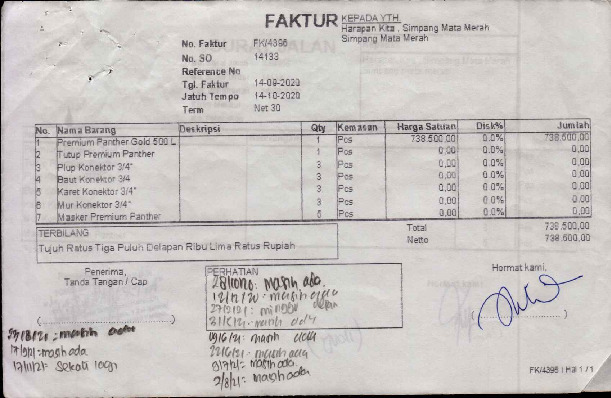 FAKTUR
KEPADA YTH.
Harapan Kita , Simpang Mata Merah
Simpang Mata Merah
No. Faktur FK/4396
No. SO 14133
Reference No
Tgl. Faktur 14-09-2020
Jatuh Tempo 14-10-2020
Term Net 30
No. Nama Barang Deskripsi Qty Kemasan Harga Satuan Disk% Jumlah
1 Premium Panther Gold 500 L 1 Pcs 738.500,00 0.0% 738.500,00
2 Tutup Premium Panther 1 Pcs 0,00 0.0% 0,00
3 Plup Konektor 3/4" 3 Pcs 0,00 0.0% 0,00
4 Baut Konektor 3/4 3 Pcs 0,00 0.0% 0,00
5 Karet Konektor 3/4" 3 Pcs 0,00 0.0% 0,00
6 Mur Konektor 3/4" 3 Pcs 0,00 0.0% 0,00
7 Masker Premium Panther Pcs 0,00 0.0% 0,00
Total 738.500,00
Netto 738.500,00
TERBILANG
Tujuh Ratus Tiga Puluh Delapan Ribu Lima Ratus Rupiah
Penerima,
Tanda Tangan / Cap
PERHATIAN
masih ada.
12/12/20 : masih ada
minggu depan
masih ada
09/6/21 : masih ada
22/6/21 : masih ada
masih ada.
2/8/21 : masih ada
masih ada
masih ada
17/11/21 : Sekali lagi
Hormat kami,
FK/4396 | Hal 1 / 1